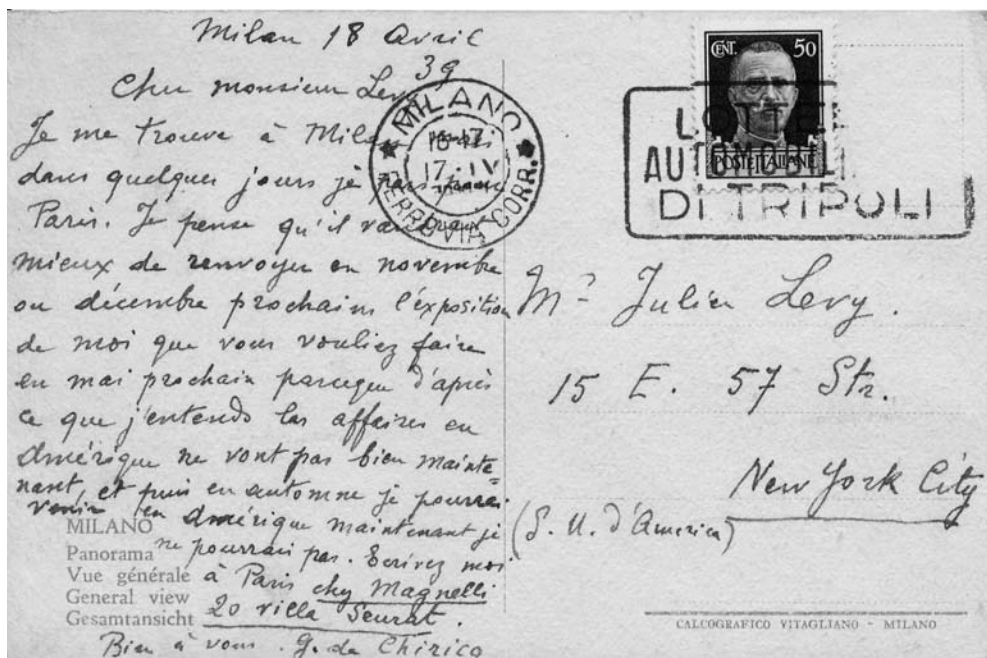 Milan 18 Avril
39
Cher monsieur Levy
Je me trouve à Milan mais
dans quelques jours je pars pour
Paris. Je pense qu'il vaut
mieux de renvoyer en novembre
ou décembre prochain l'éxposition
de moi que vous vouliez faire
en mai prochain parceque d'après
ce que j'entends les affaires en
Amérique ne vont pas bien mainte=
nant, et puis en automne je pourrai
venir en Amérique maintenant je
ne pourrai pas. Ecrivez moi
à Paris chez Magnelli
20 villa Seurat.
Bien à vous. G. de Chirico
MILANO
Panorama
Vue générale
General view
Gesamtansicht
MILANO
16-17
17·IV
FERROVIA CORR.
CENT. 50
POSTE ITALIANE
AUTOMOBIL
DI TRIPOLI
Mr Julien Levy.
15 E. 57 Str.
New York City
(S. U. d'America)
CALCOGRAFICO VITAGLIANO - MILANO